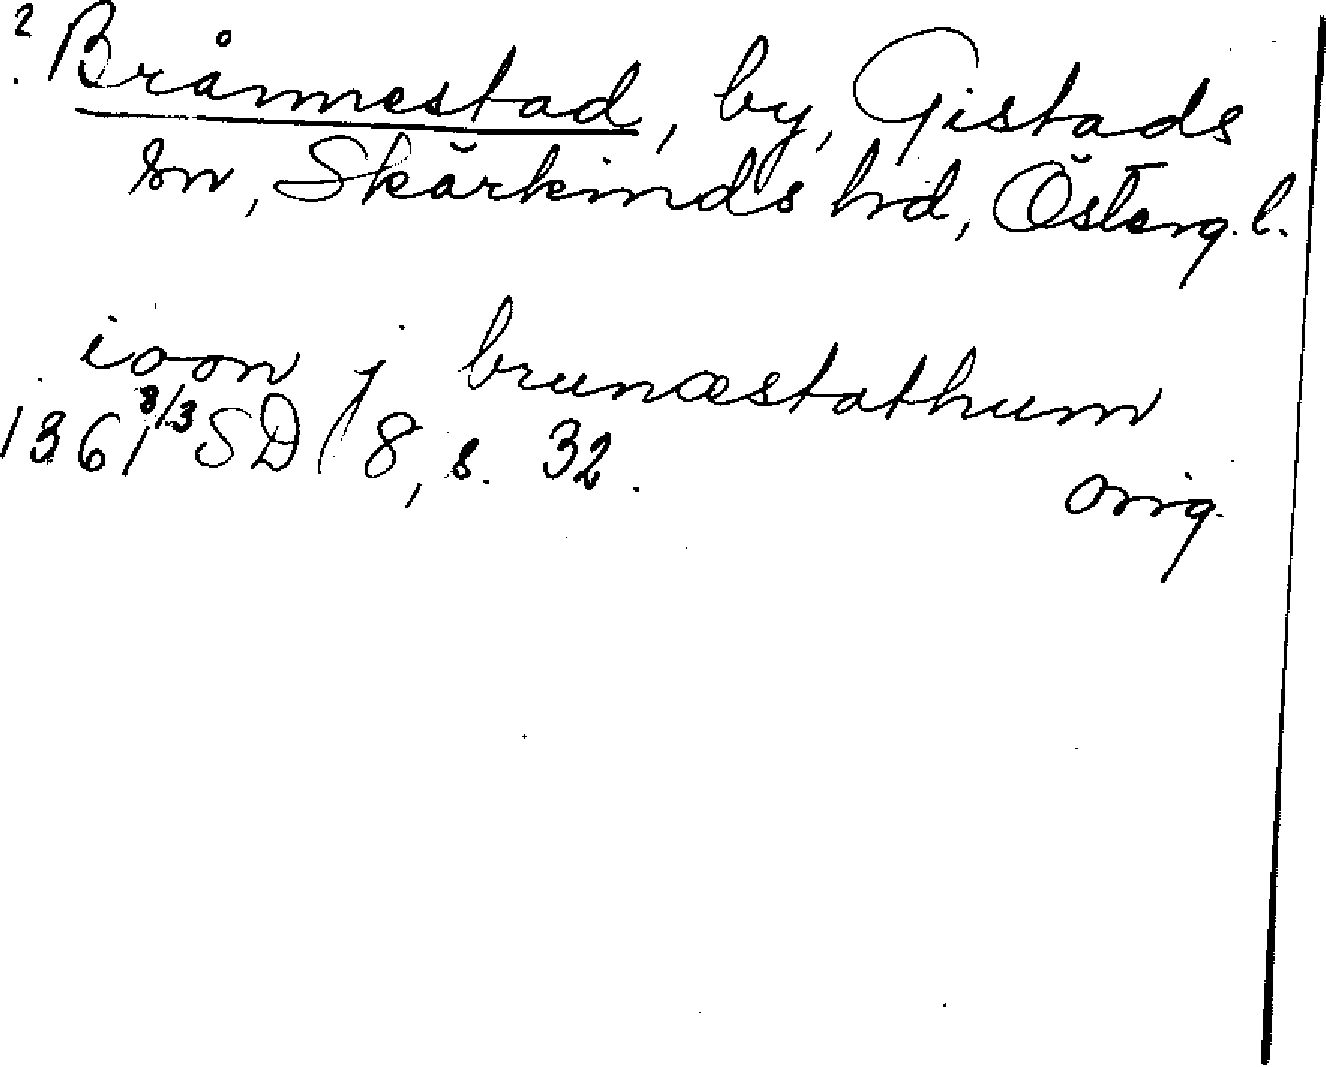 ? Brånnestad, by, Gistads
sn, Skärkinds hd, Österg. l.
ioon j brunæstathum
1361 8/3 SD 8, s. 32.
orig.